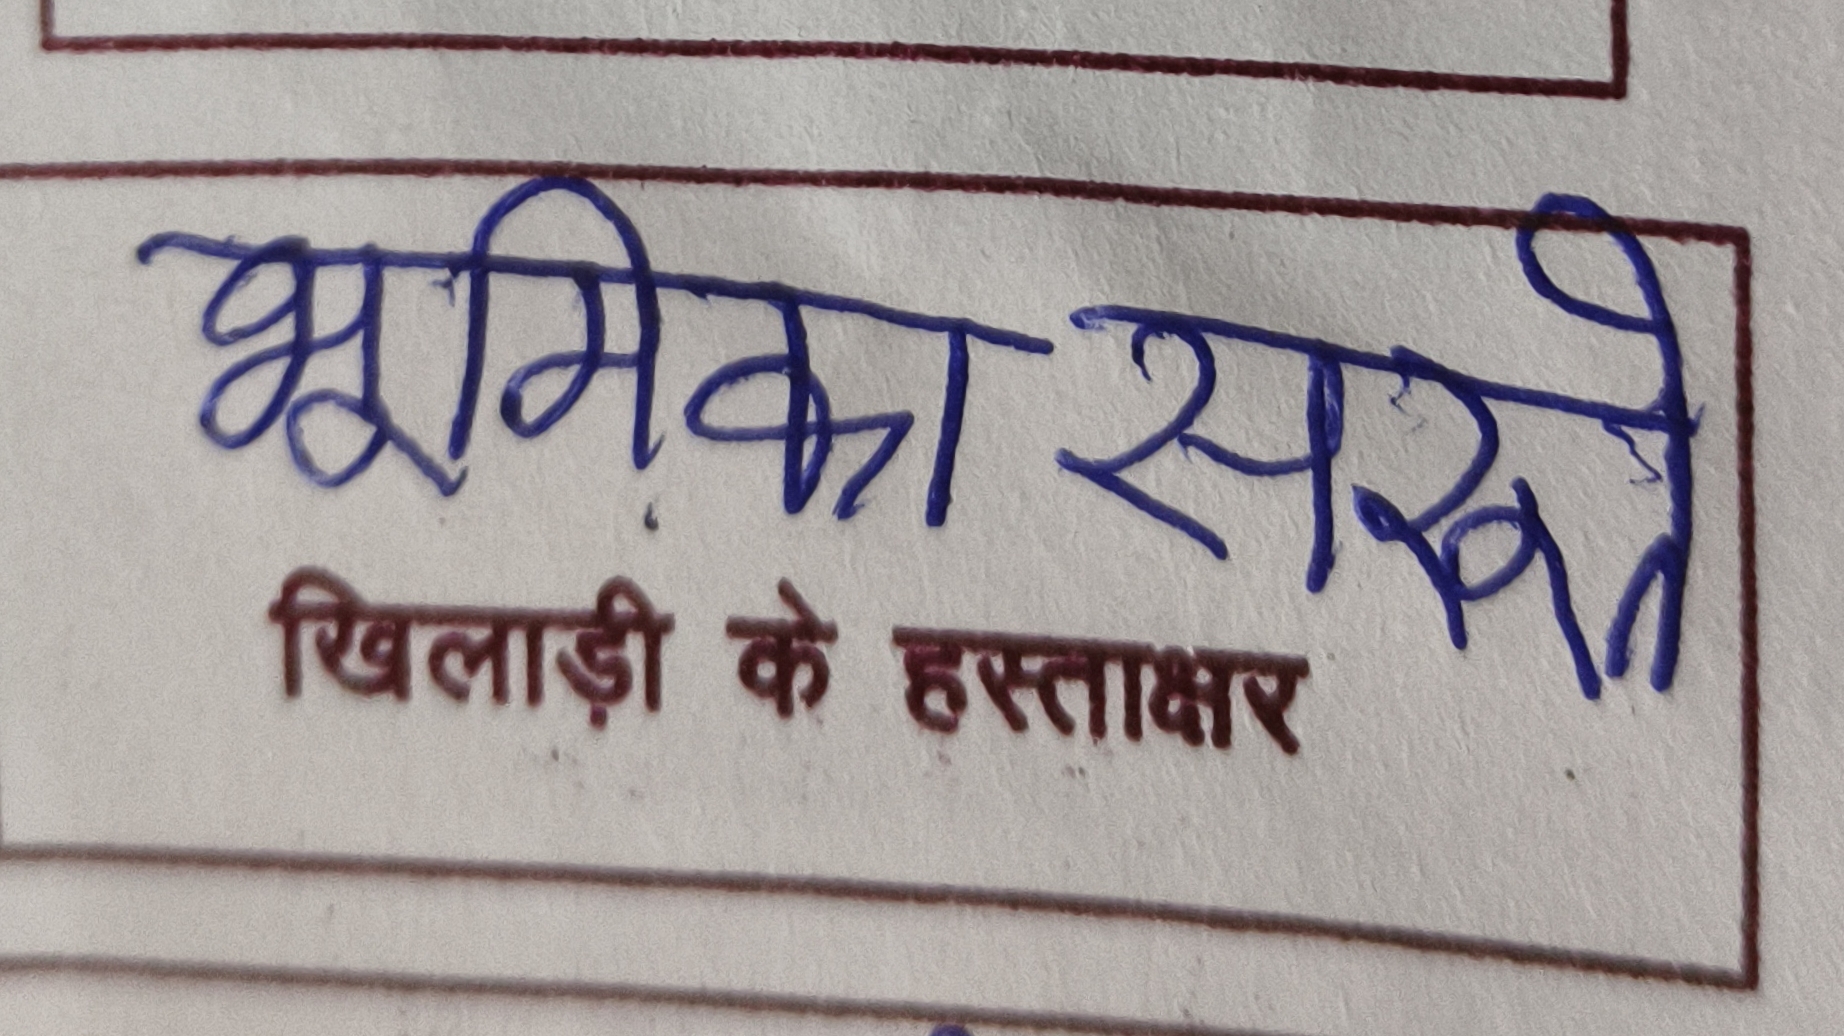 भूमिका सरूते
खिलाड़ी के हस्ताक्षर